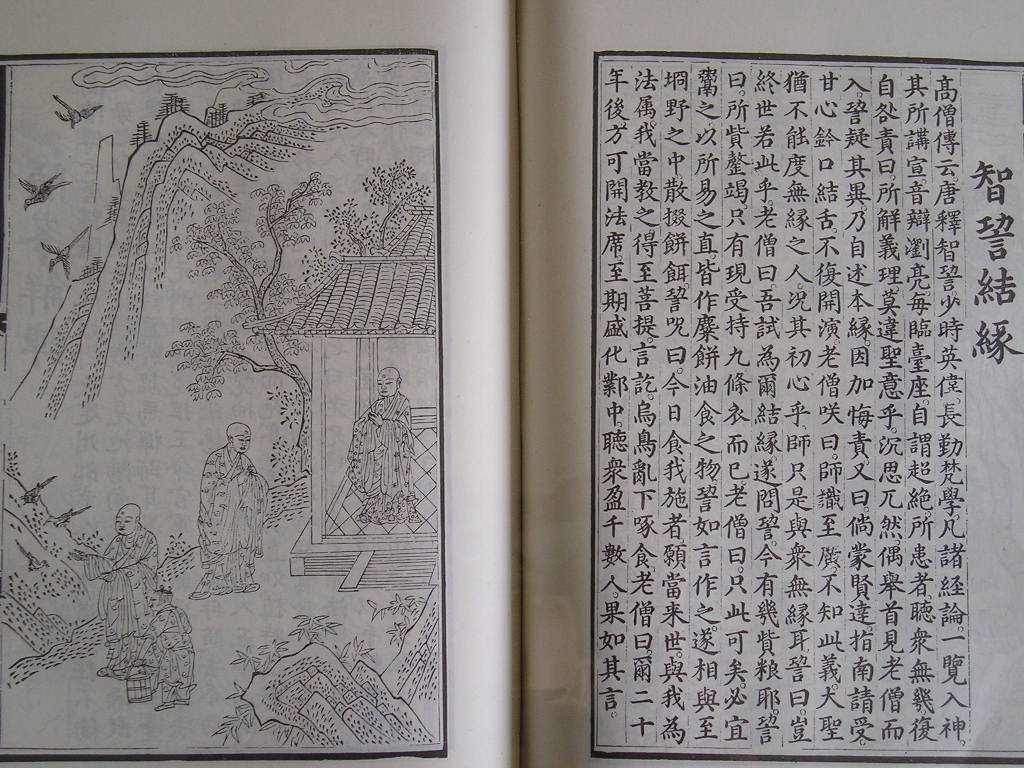 智䛒結緣
高僧傳云。唐釋智䛒。少時英偉。長勤梵學。凡諸經論。一覽入神。
其所講宣。音辯瀏亮。每臨臺座。自謂超絕。所患者。聽衆無幾。復
自咎責曰。所解義理。莫違聖意乎。沉思兀然。偶舉首見老僧而
入。䛒疑其異。乃自述本緣。因加悔責。又曰。倘蒙賢達。指南請受。
甘心鈐口結舌。不復開演。老僧咲曰。師識至廣。不知此義。大聖
猶不能度無緣之人。況其初心乎。師只是與衆無緣耳。䛒曰。豈
終世若此乎。老僧曰。吾試為爾結緣。遂問䛒。今有幾貲粮耶。䛒
曰。所貲罄竭。只有現受持九條衣而已。老僧曰。只此可矣。必宜
鬻之。以所易之直。皆作麋餅油食之物。䛒如言作之。遂相與至
坰野之中。散掇餅餌。䛒呪曰。今日食我施者。願當来世。與我為
法属。我當教之。得至菩提。言訖。烏鳥亂下啄食。老僧曰。爾二十
年後。方可開法席。至期盛化鄴中。聽衆盈千數人。果如其言。